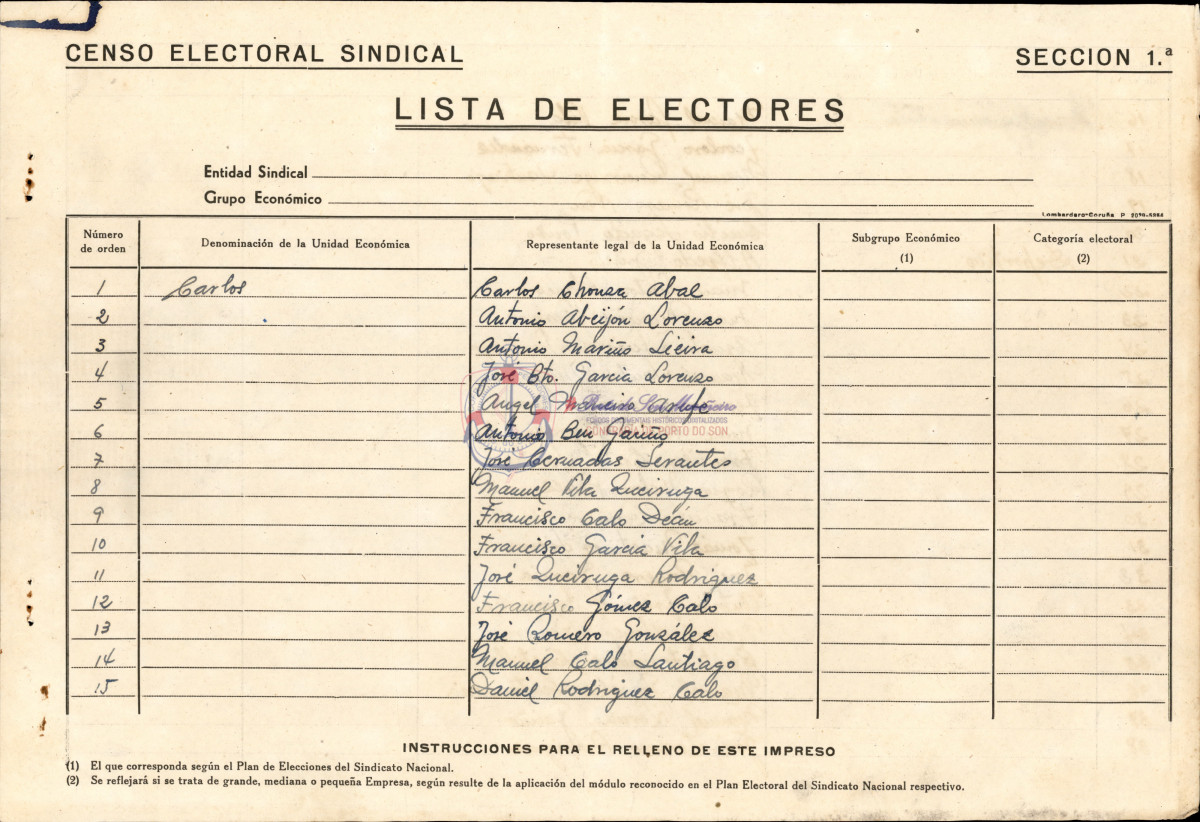 CENSO ELECTORAL SINDICAL SECCION 1.ª
LISTA DE ELECTORES
Entidad Sindical
Grupo Económico
Lombardero-Coruña P
Número de orden Denominación de la Unidad Económica Representante legal de la Unidad Económica Subgrupo Económico (1) Categoría electoral (2)
1 Carlos Carlos Chouza Abal
2 Antonio Abeijón Lorenzo
3 Antonio Mariño Lieira
4 José Bto. García Lorenzo
5 Angel
6 Antonio Ben Gariño
7 José Cernadas Servantes
8 Manuel Vila Queiruga
9 Francisco Calo Deán
10 Francisco García Vila
11 José Queiruga Rodriguez
12 Francisco Gómez Calo
13 José Romero González
14 Manuel Calo Santiago
15 Daniel Rodriguez Calo
FONDOS DOCUMENTAIS HISTÓRICOS DIGITALIZADOS
PORTO DO SON
INSTRUCCIONES PARA EL RELLENO DE ESTE IMPRESO
(1) El que corresponda según el Plan de Elecciones del Sindicato Nacional.
(2) Se reflejará si se trata de grande, mediana o pequeña Empresa, según resulte de la aplicación del módulo reconocido en el Plan Electoral del Sindicato Nacional respectivo.